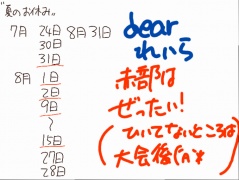 "夏のお休み。
7月 24日 8月31日
30日
31日
8月 1日
2日
9日
〜
15日
27日
28日
dear
れいら
赤部は
ぜったい!
(ひいてないところは
大会後(´n`*